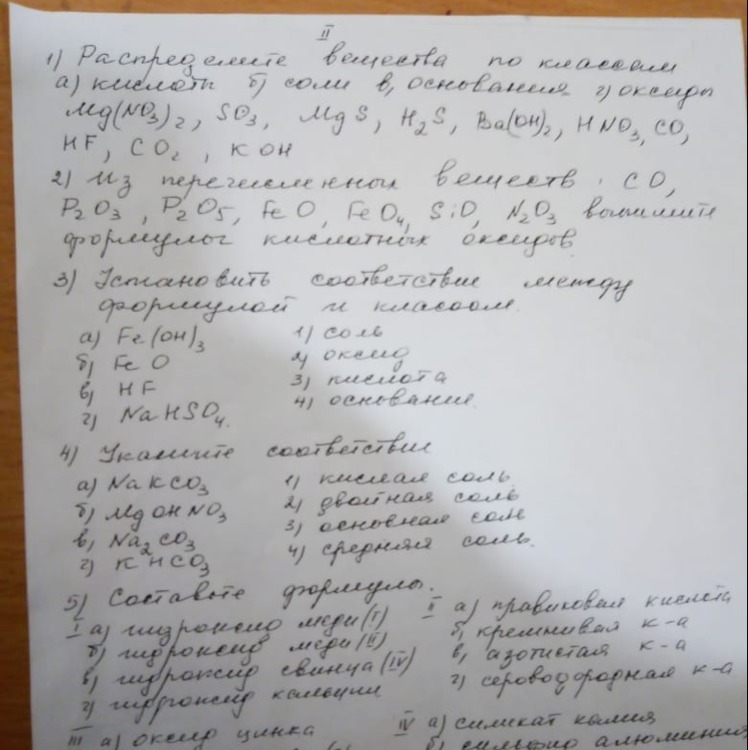 II
1) Распределите вещества по классам
а) кислоты б) соли в) основания г) оксиды
Mg(NO3)2, SO3, MgS, H2S, Ba(OH)2, HNO3, CO,
HF, CO2, KOH
2) Из перечисленных веществ. CO,
P2O3, P2O5, FeO, FeO4, SiO, N2O3 выпишите
формулы кислотных оксидов
3) Установить соответствие между
формулой и классом.
а) Fe(OH)3 1) соль
б) FeO 2) оксид
в) HF 3) кислота
г) NaHSO4. 4) основание.
4) Укажите соответствие
а) NaKCO3 1) кислая соль
б) MgOHNO3 2) двойная соль
в) Na2CO3 3) основная соль
г) KHCO3 4) средняя соль.
5) Составьте формулы.
I а) гидроксид меди (I) II а) плавиковая кислота
б) гидроксид меди (II) б) кремниевая к-а
в) гидроксид свинца (IV) в) азотистая к-а
г) гидроксид кальция г) сероводородная к-а
III а) оксид цинка IV а) силикат калия
б) сульфид алюминия